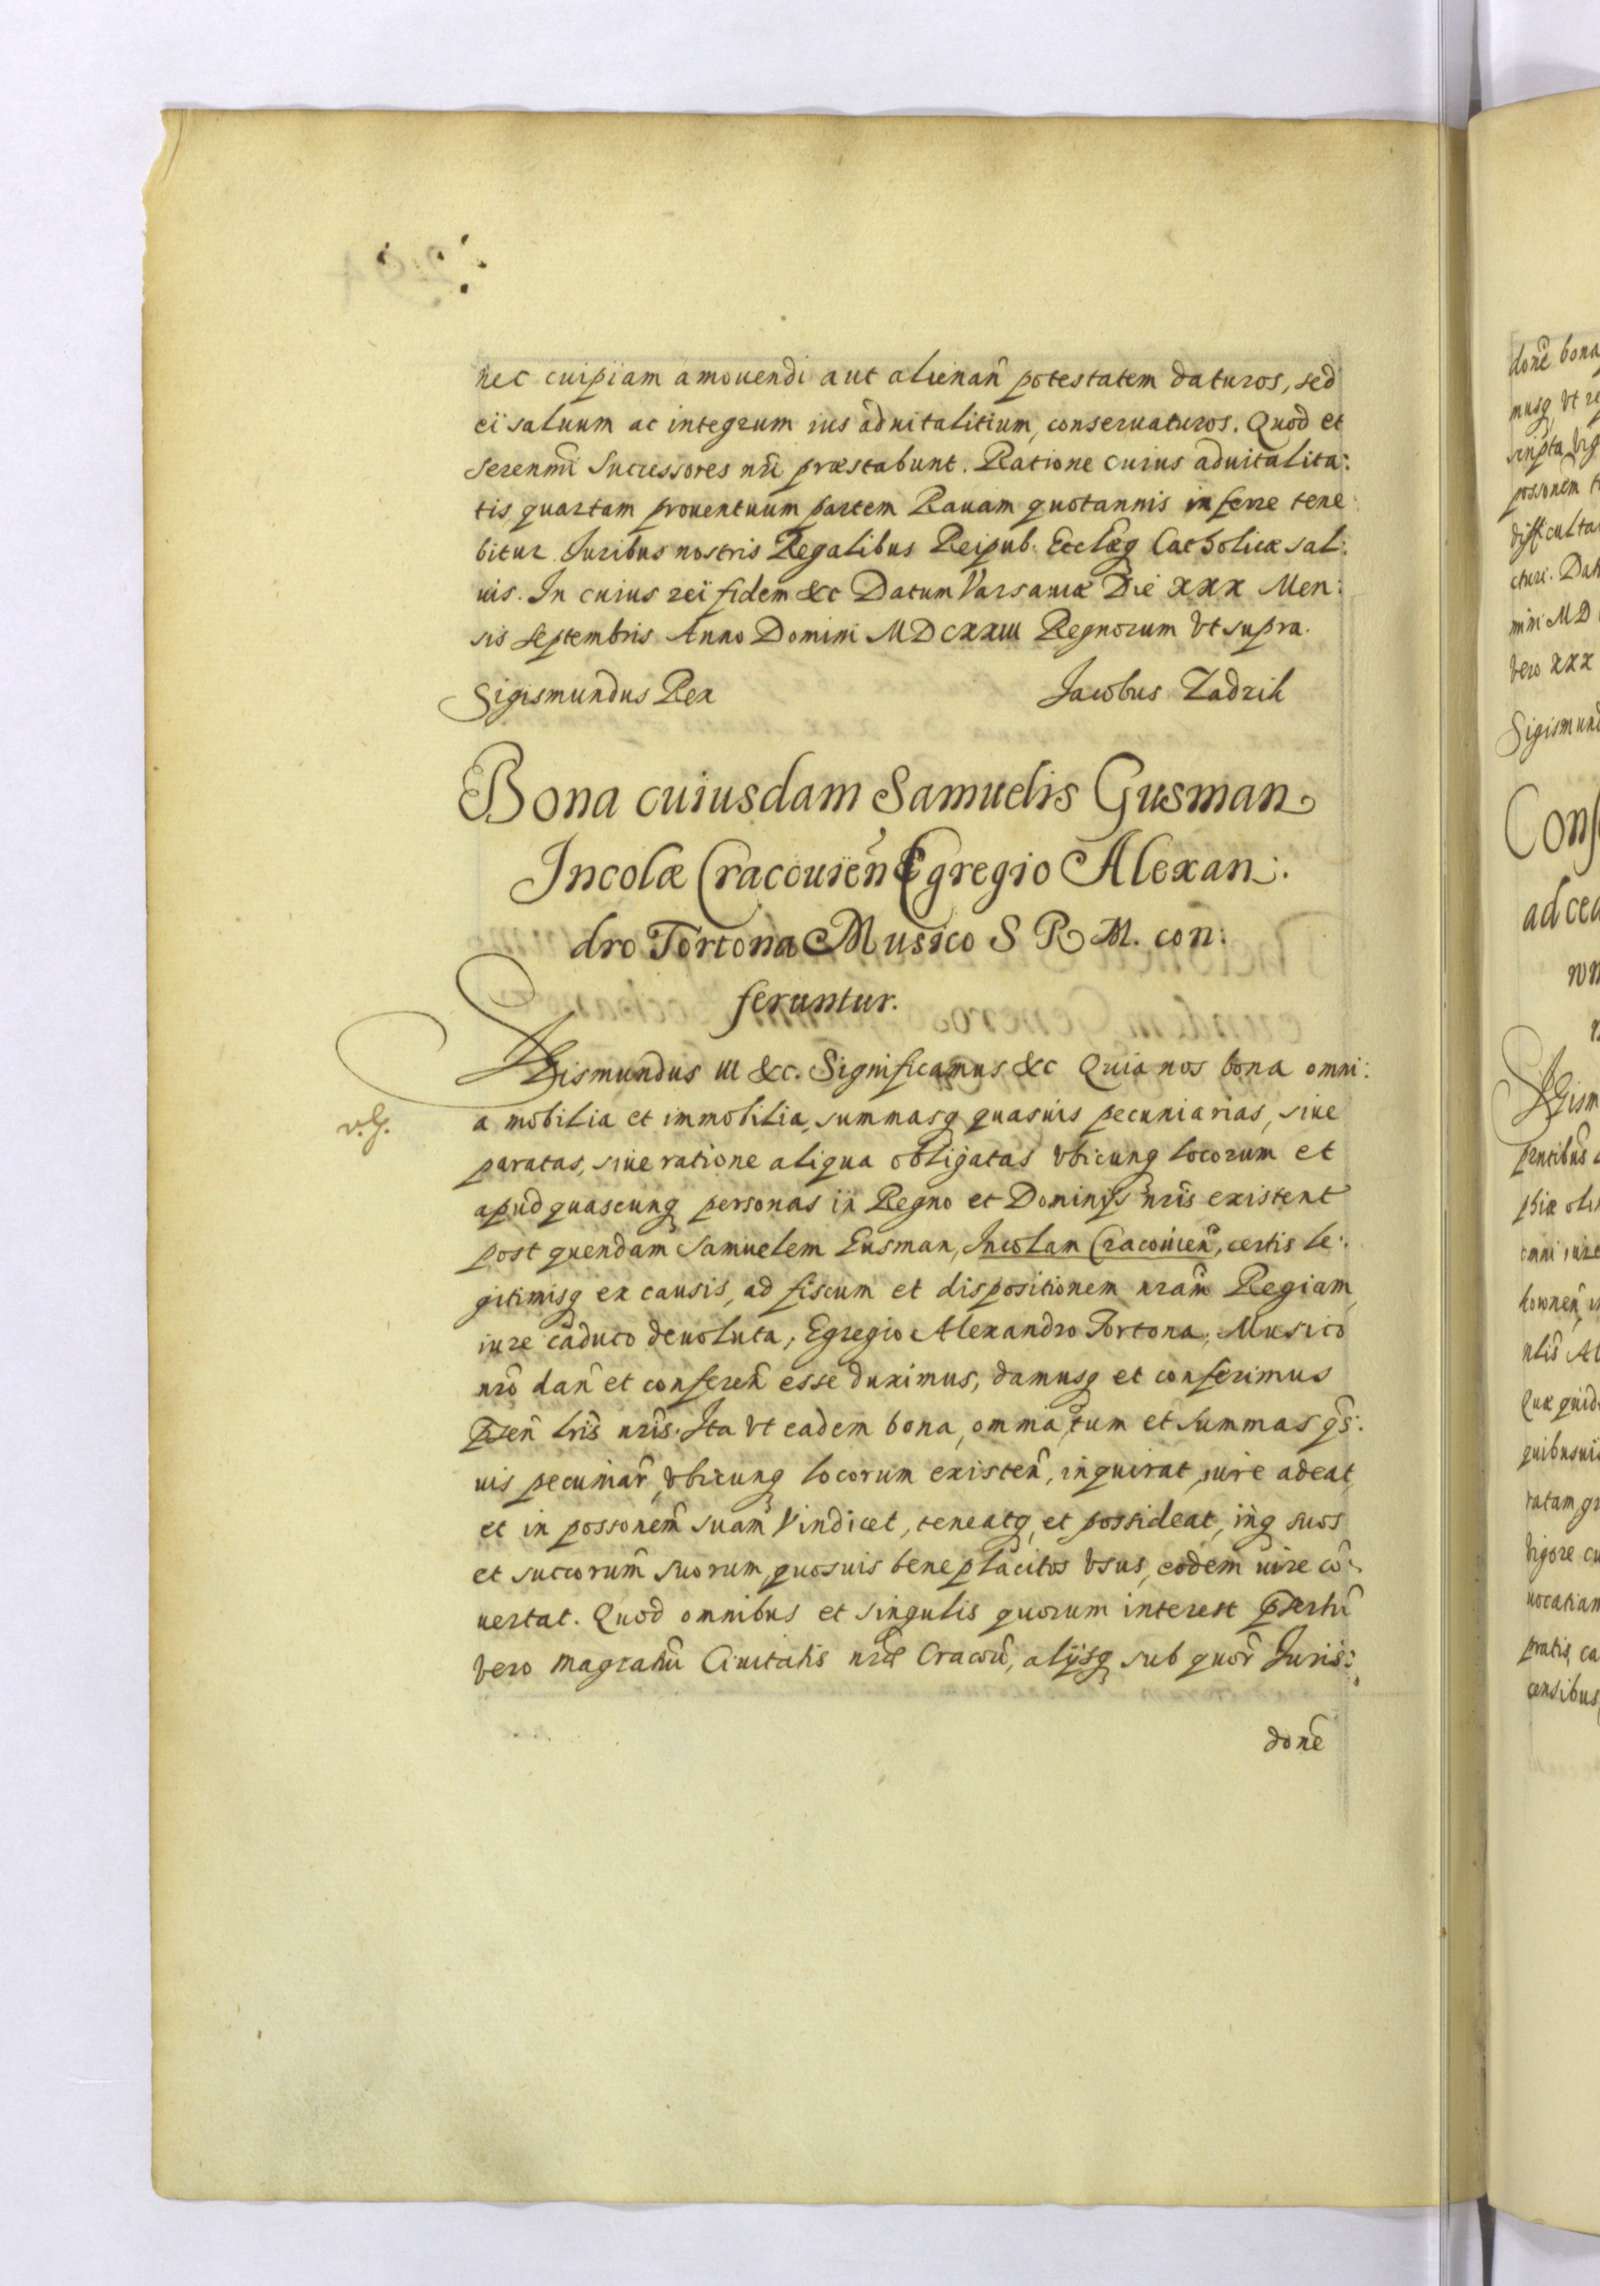 nec cuipiam amouendi aut alienañ potestatem daturos, sed
ei saluum ac integrum ius aduitalitium, conseruaturos. Quod et
Serenmi Successores nri præstabunt. Ratione cuius aduitalita:
tis quartam prouentuum partem Rauam quotannis inferre tene
bitur Juribus nostris Regalibus Reipub: Ecclæq Catholicæ sal:
uis. In cuius rei fidem &c Datum Varsauiæ Die XXX Men:
sis Septembris Anno Domini MDCXXIII Regnorum vt supra.
Sigismundus Rex Jacobus Zadzik
Bona cuiusdam Samuelis Gusman
Incolæ Cracouien Egregio Alexan:
dro Tortona Musico S R M. con:
feruntur.
Sigismundus III &c. Significamus &c Quia nos bona omni:
a mobilia et immobilia, summasq quasuis pecuniarias, siue
paratas, siue ratione aliqua obligatas vbicunq locorum et
apud quascunq personas in Regno et Dominijs nris existent
post quendam Samuelem Eusman, Incolam Cracouien, certis le:
gitimisq ex causis, ad fiscum et dispositionem nram Regiam,
iure caduco deuoluta, Egregio Alexandro Tortona, Musico
nro dañ et conferen esse duximus, damusq et conferimus
pñten lris nris. Ita vt eadem bona, omnia, tum et summas qs:
uis pecuniar, vbicunq locorum existen, inquirat, iure adeat,
et in possonem suam Vindicet, teneatq, et possideat, inq suos
et succorum suorum quosuis beneplacitos vsus, eodem iure cō:
uertat. Quod omnibus et singulis quorum interest pserti
vero magratui Ciuitatis nræ Cracou, alijsq sub quor Juris:
done
donē bona
musq vt re
scripta vig
possonem
difficulta
cturi. Dat
mini MD
vero XXX
Sigismund
Cons
ad cea